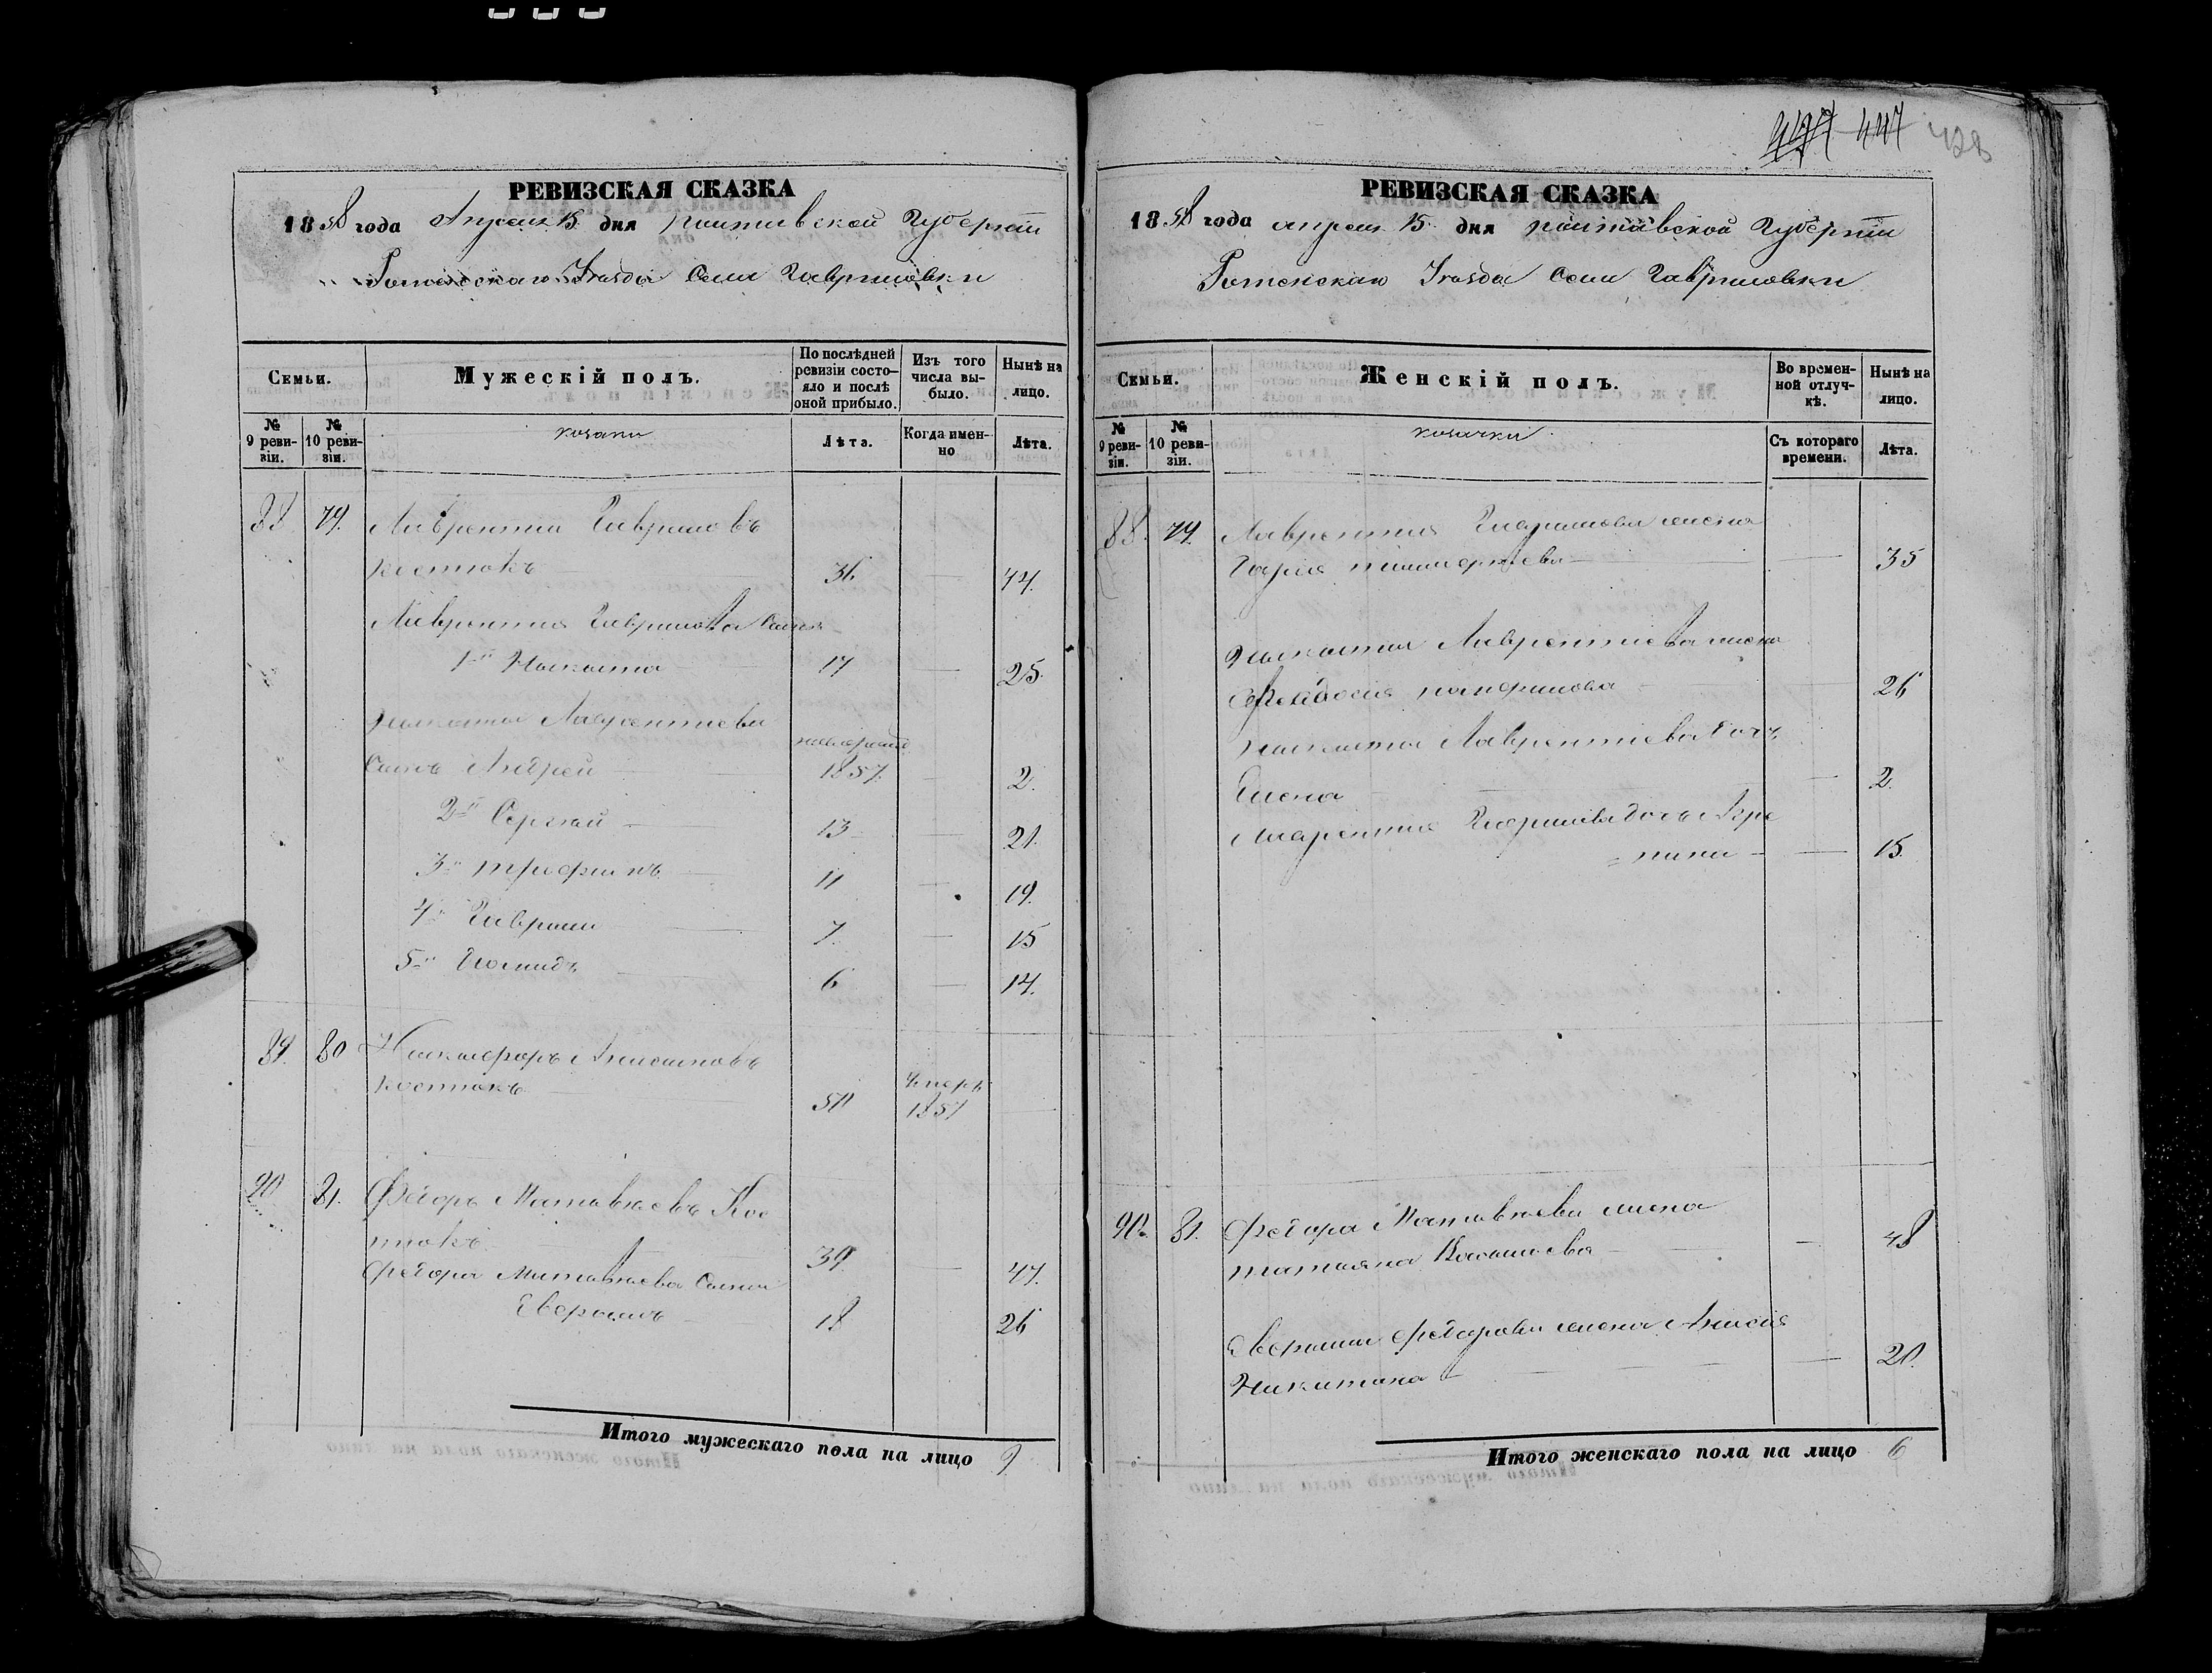 447 428
РЕВИЗСКАЯ СКАЗКА
1858 года Апреля 15 дня Полтавской Губернии
Роменскаго Уезда Села Гавриловки
Семьи.
Мужескій полъ.
По послѣдней ревизіи состояло и послѣ оной прибыло.
Изъ того числа выбыло.
Нынѣ на лицо.
№ 9 ревизіи.
№ 10 ревизіи.
козаки
Лѣта.
Когда именно
Лѣта.
88 79. Лаврентий Гавриловъ
Костюкъ 36 44.
Лаврентия Гаврилова Сыны
1й Никита 17 25.
Никиты Лаврентиева
Сынъ Андрей 1857. 2.
2й Сергий 13 21.
3й Трофимъ 11 19.
4й Гаврило 7. 15
5й 6 14.
89. 80 Никифоръ
Костюкъ 50 умеръ 1857
90 81. Федоръ Матвѣевъ Кос
тюкъ 39. 47.
Федора Матвѣева Сынъ
18 26
Итого мужескаго пола на лицо 9
РЕВИЗСКАЯ СКАЗКА
1858 года апреля 15 дня Полтавской Губернии
Роменскаго Уезда Села Гавриловки
Семьи.
Женскій полъ.
Во временной отлучкѣ.
Нынѣ на лицо.
№ 9 ревизіи.
№ 10 ревизіи.
козачки
Съ котораго времени.
Лѣта.
88. 79. Лаврентия Гаврилова жена
35
Никиты Лаврентиева жена
Феодосия 26
Никиты Лаврентиева дочь
Елена 2.
Лаврентия Гаврилова дочь Агре
пина 15.
90. 81. Федора Матвѣева жена
Татьяна 48
Федорова жена Анисия
Никитина 20.
Итого женскаго пола на лицо 6